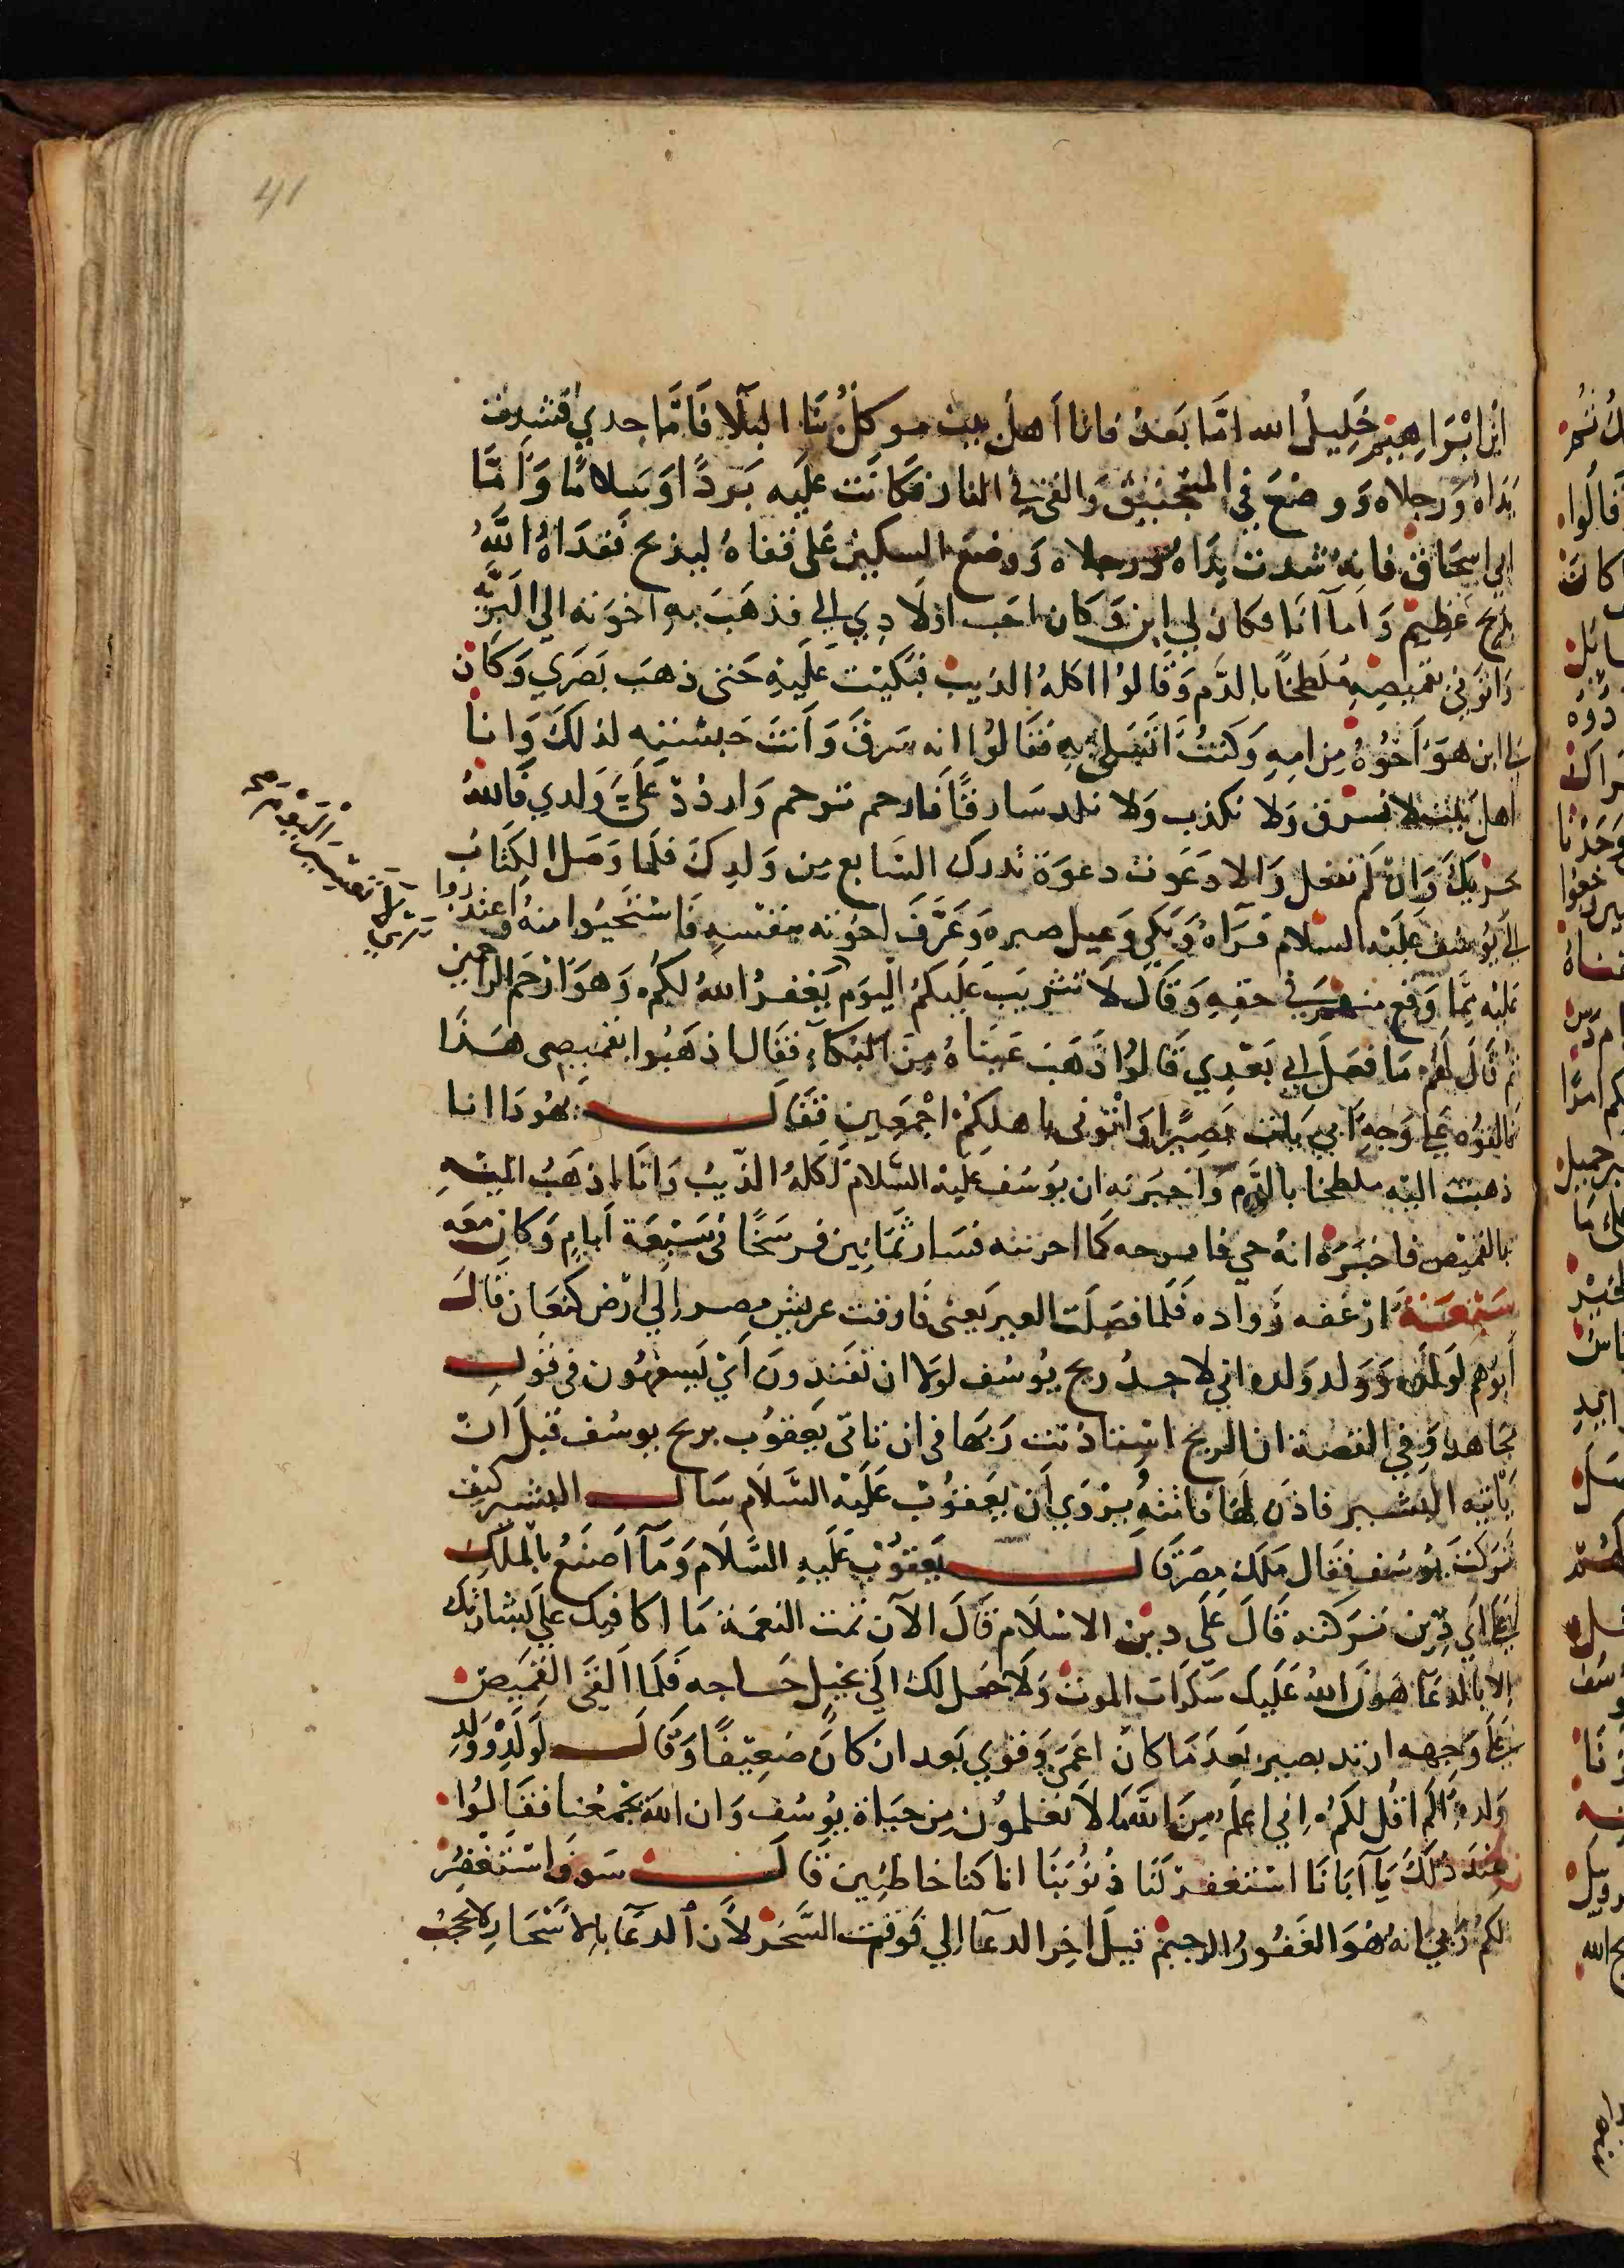 41
ابن ابْرَاهِيْم خَلِيلُ الله امَّا بَعدُ فانا اَهلُ بيت موكلٌ بنَا البَلَا فَامَّا جدي فشدت
يَدَاهُ وَرجلاه وَوضعَ في المنجنيق والقي في النار فكانت عليه بَردًا وَسَلامًا وَامَّا
ابي اسحَاق فانه شدت يدَاهُ ورجلاه وَوضع السكين عَلى قفاهُ ليذبح ففدَاهُ اللهُ
بذبح عَظِيم وَاَما اَنَا فكان لي ابن وَكان احَب اولَادِي الي فذهَبَ به اخوَته الي البَرِّيَّة
وَاتوني بقميصه ملطخًا بالدَّم وَقَالوُا اكلهُ الذيب فبَكيْت عَلَيْه حَتى ذهبَ بَصَري وَكان
لي ابن هوَ اَخوُهُ من امه وَكنتُ اتَسَلى به فقَالوُا انه سَرقَ وَاَنتَ حَبسْته لذلكَ وَانا
اهل بيت لا نسرق وَلا نكذب وَلا نلد سَارقًا فَارحم ترحم وَاردُدْ عَلَيَّ وَلدي فَاللهُ
يجزيكَ وَانْ لَم تفعل وَالا دعَوت دعوَة تدرك السَابع من وَلدِكَ فلمَا وَصَل الكتَاب
الي يوُسُف عَلَيْه السلام قرَاهُ وَبَكي وَعيل صبره وَعَرَّفَ اخوَته بنفسه فَاستَحيوُا منهُ وَاعتذروا
عَليْه ممَّا وَقع منهم في حقه وَقَالَ لَا تثريبَ عَلَيكمُ اليَوم يَغفرُ اللهُ لكمُ وَهوَ اَرْحَم الراحمين
ثم قَالَ لهُم مَا فعَلَ ابي بَعْدِي قَالوُا ذَهَبَت عَينَاهُ مِنَ البُكَاءِ فقَال اذهَبُوا بقميصي هَذا
فَالقوُه عَلي وَجه اَبي يَات بَصيرًا وَاْتوني باهلكمُ اجْمَعين فَقَالَ يَهُودَا انا
ذهبت اليه ملطخا بالدَّم وَاخبَرته ان يوُسُف عليه السَّلام اَكلهُ الذّيبُ وَانَا اذهَبُ اليْه
بالقميْص فاخبَرهُ انهُ حي فافرحه كمَا احزنته فسَار ثَمَانين فرسَخًا في سَبْعَة اَيام وَكان معَه
سَبْعَة ارغفه زَواده فَلَمَا فصَلَت العير يَعني فَارقت عريش مصر اِلَي ارْض كنعَان قَالَ
اَبوُهم لوَلَده وَوَلد وَلده اني لاجدُ ريح يوُسُف لولا ان تفندونَ اَيْ تَسفهُون في قول
مجاهد وَفي القصة ان الريح استاذنت رَبهَا في ان تاتي يَعقوُب بريح يوسُف قبل اَن
يَاتيه البشير فاذَن لهَا فاتتهُ يرْوَي اَن يَعقوُب عَلَيْه السَّلَام سَال البشير كَيْف
تَرَكت يوُسُف فقَال مَلك مصْر قَالَ يَعقوُب عَلَيه السَّلَام وَمَا اَصنَعُ بالملك
عَلَي اي دِين تركته قَالَ عَلَي دين الاسْلَام قَالَ الآن تمت النعمَة مَا اكافيك عَلي بشارتك
الا بالدعَا هَون اللهُ عَلَيك سَكرات الموت وَلَا جعَل لك الي بخيل حَاجه فَلَمَا القَي القَميص
عَلَي وَجهه ارتد بصير بَعدَ مَا كان اعمَي وَقوي بَعد ان كانَ ضَعيفًا وَقَالَ لوَلَدْهْ وَوَلدِ
وَلده اَلَم اقُل لكمُ اني اعلَم مِنَ الله مَا لَا تعلموُن من حيَاة يوُسُف وَان الله يجْمَعُنَا فقَالوُا
عِندَ ذلكَ يَا آبَانَا اسْتغفرْ لَنَا ذُنوُبَنَا انا كنا خاطئين قَالَ سَوفَ اسْتَغْفِرُ
لكمُ رَبي انهُ هُوَ الغَفُورُ الرحيمْ قيلَ اخر الدعَا الي وَقت السَّحَر لان الدعَا بالاسْحَار لا يحجبُ